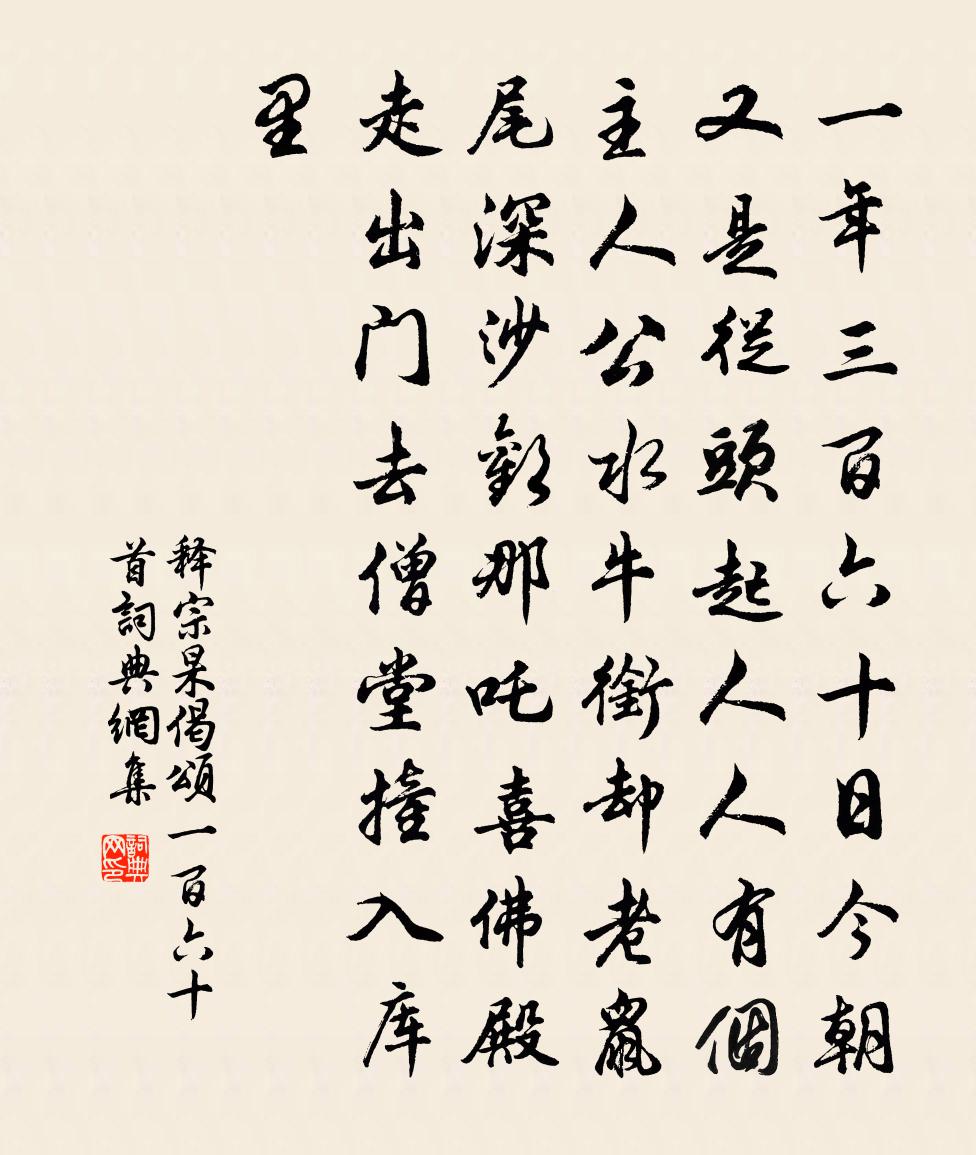 一年三百六十日今朝
又是從頭起人人有個
主人公水牛銜却老鼠
尾深沙歡那吒喜佛殿
走出门去僧堂撞入库
里
释宗杲偈頌一百六十
首詞典網集
詞典网印